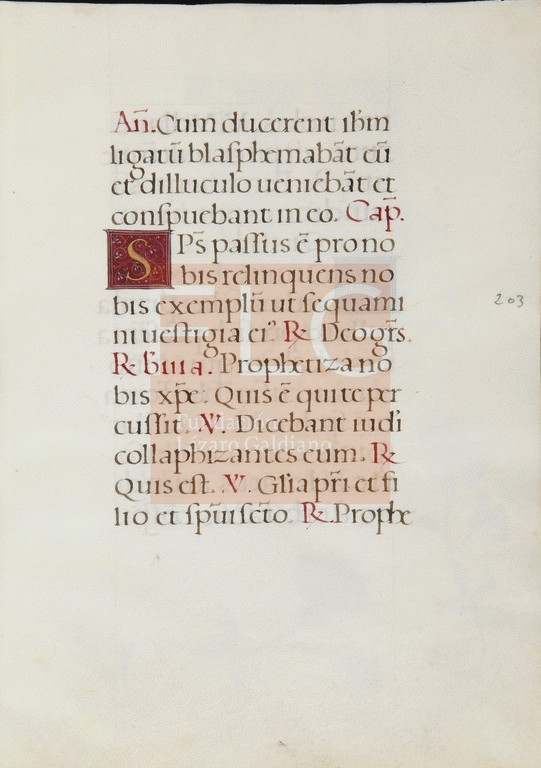 Añ. Cum ducerent ibm
ligatū blasphemabāt eū
et dilluculo ueniebāt et
conspuebant in eo. Cap̄.
S P̄s passus ē pro no
bis relinquens no
bis exemplū ut sequami
ni uestigia ei⁹. ℟. Deo gr̄s.
℟. Prophetiza no
bis xp̄e. Quis ē qui te per
cussit. ℣. Dicebant iudi
collaphizantes eum. ℟
Quis est. ℣. Gl̄ia pr̄i et fi
lio et sp̄ui sc̄to. ℟. Prophe
203
FLG
Fundación
Lázaro Galdiano